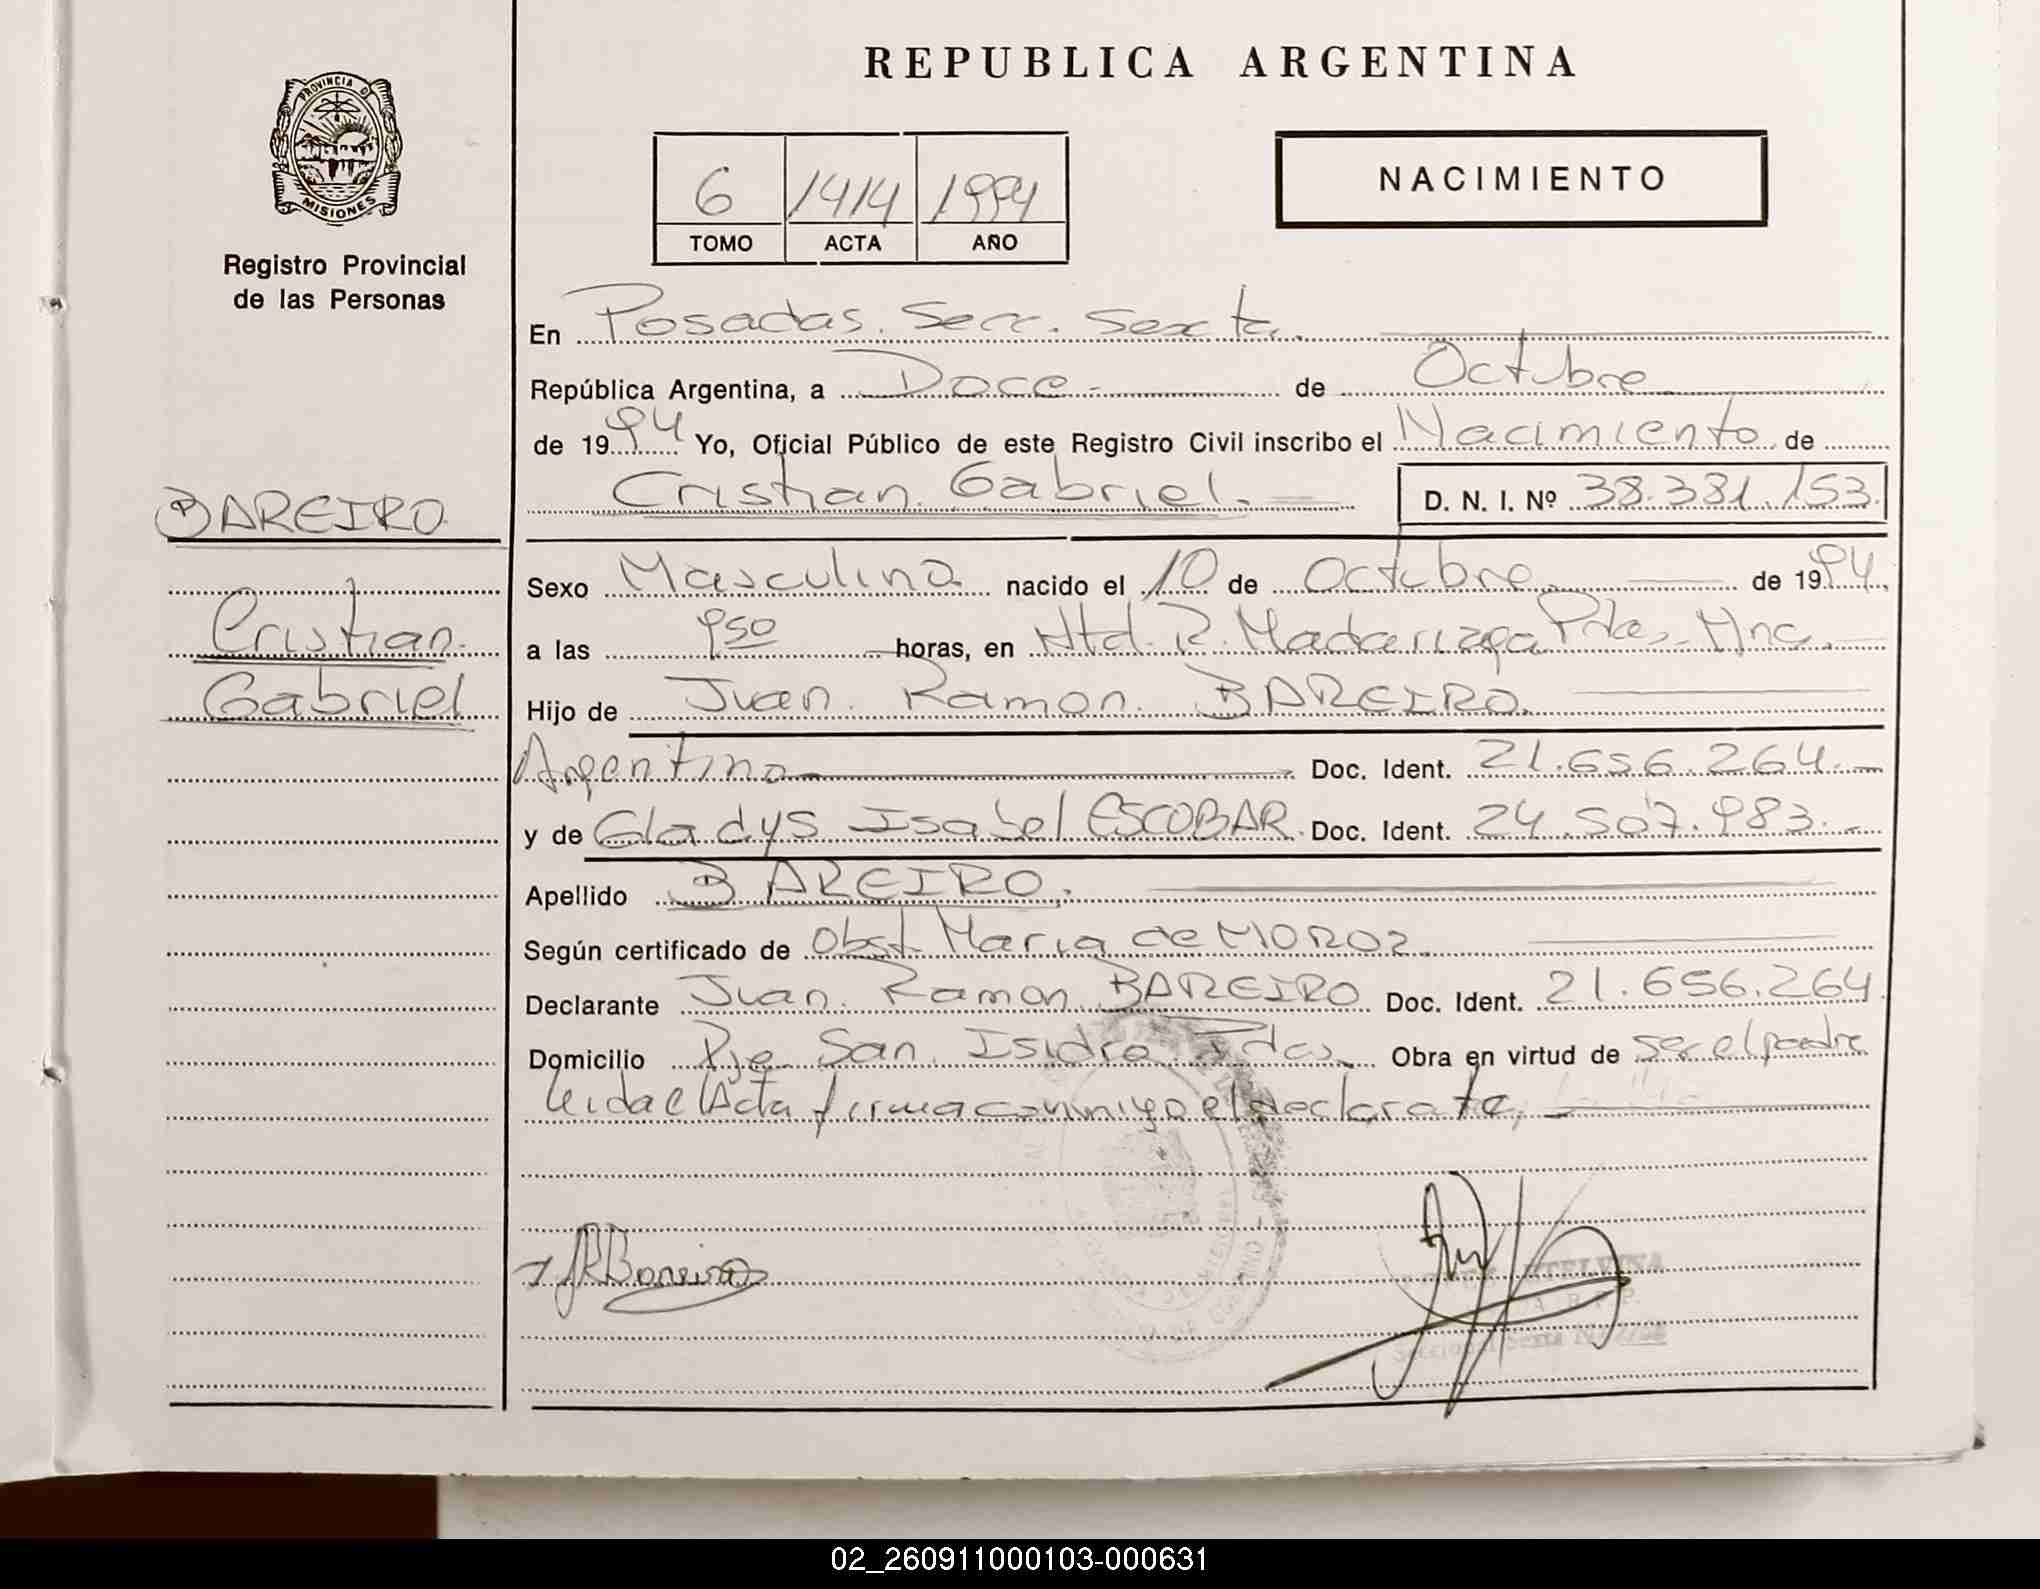 PROVINCIA DE
MISIONES
Registro Provincial
de las Personas
BAREIRO
Cristian
Gabriel
REPUBLICA ARGENTINA
6 1414 1994
TOMO ACTA AÑO
NACIMIENTO
En Posadas. Secc. Sexta.
República Argentina, a Doce.- de Octubre
de 1994 Yo, Oficial Público de este Registro Civil inscribo el Nacimiento de
Cristian Gabriel.
D. N. I. Nº 38.381.153.
Sexo Masculino nacido el 10 de Octubre de 1994
a las 9 50 horas, en R. Madariaga Pdas.- Mnes.
Hijo de Juan Ramon BAREIRO.
Argentino Doc. Ident. 21.656.264.-
y de Gladys Isabel ESCOBAR. Doc. Ident. 24.507.983.-
Apellido BAREIRO.
Según certificado de Obst. Maria de MOROZ
Declarante Juan Ramon BAREIRO Doc. Ident. 21.656.264
Domicilio Pje San Isidro Pdas. Obra en virtud de ser el padre
leida el Acta firma conmigo el declarate,
JRBareiro
Seccional Sexta
02_260911000103-000631